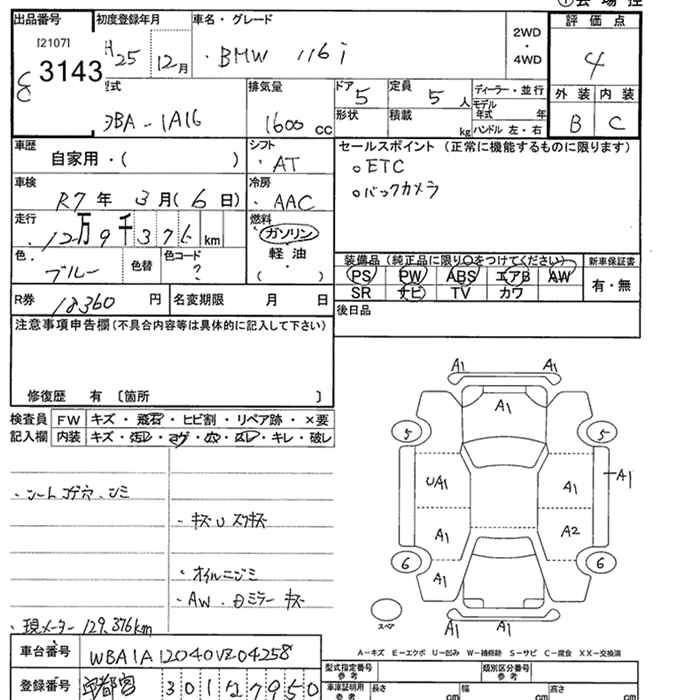 会場控
出品番号 初度登録年月 車名・グレード 2WD・4WD 評価点
[2107]
3143
H25 12月
・BMW 116i
4
型式 排気量 ドア 5 定員 5人 ディーラー・並行 外装 内装
3BA-1A16 1600cc 形状 積載 kg モデル年式 年 ハンドル 左・右 B C
車歴 自家用・( ) シフト ・AT セールスポイント(正常に機能するものに限ります)
。ETC
。バックカメラ
車検 R7年 3月(6日) 冷房 ・AAC
走行 ・12万9千376km 燃料 ガソリン
軽油
・( )
色 ブルー 色替 色コード ?
装備品(純正品に限り○をつけてください) 新車保証書
PS PW ABS エアB AW 有・無
SR ナビ TV カワ
R券 18360円 名変期限 月 日
後日品
注意事項申告欄(不具合内容等は具体的に記入して下さい)
修復歴 有 〔箇所 〕
検査員 FW キズ・飛石・ヒビ割・リペア跡・×要
記入欄 内装 キズ・汚レ・コゲ・穴・スレ・キレ・破レ
・シートコゲ穴、シミ
・キズU スリキズ
・オイルニジミ
・AW、Dミラー キズ
・現メーター 129,376km
A1 A1
A1
5 5
UA1 A1 A1
A1 A2
6 A1 6
スペア A1 A1
A-キズ E-エクボ U-凹み W-補修跡 S-サビ C-腐食 XX-交換済
車台番号 WBA1A12040VZ04258
型式指定番号 参考 類別区分番号 参考
登録番号 宇都宮 301 7950
車庫証明用 参考 長さ cm 幅 cm 高さ cm